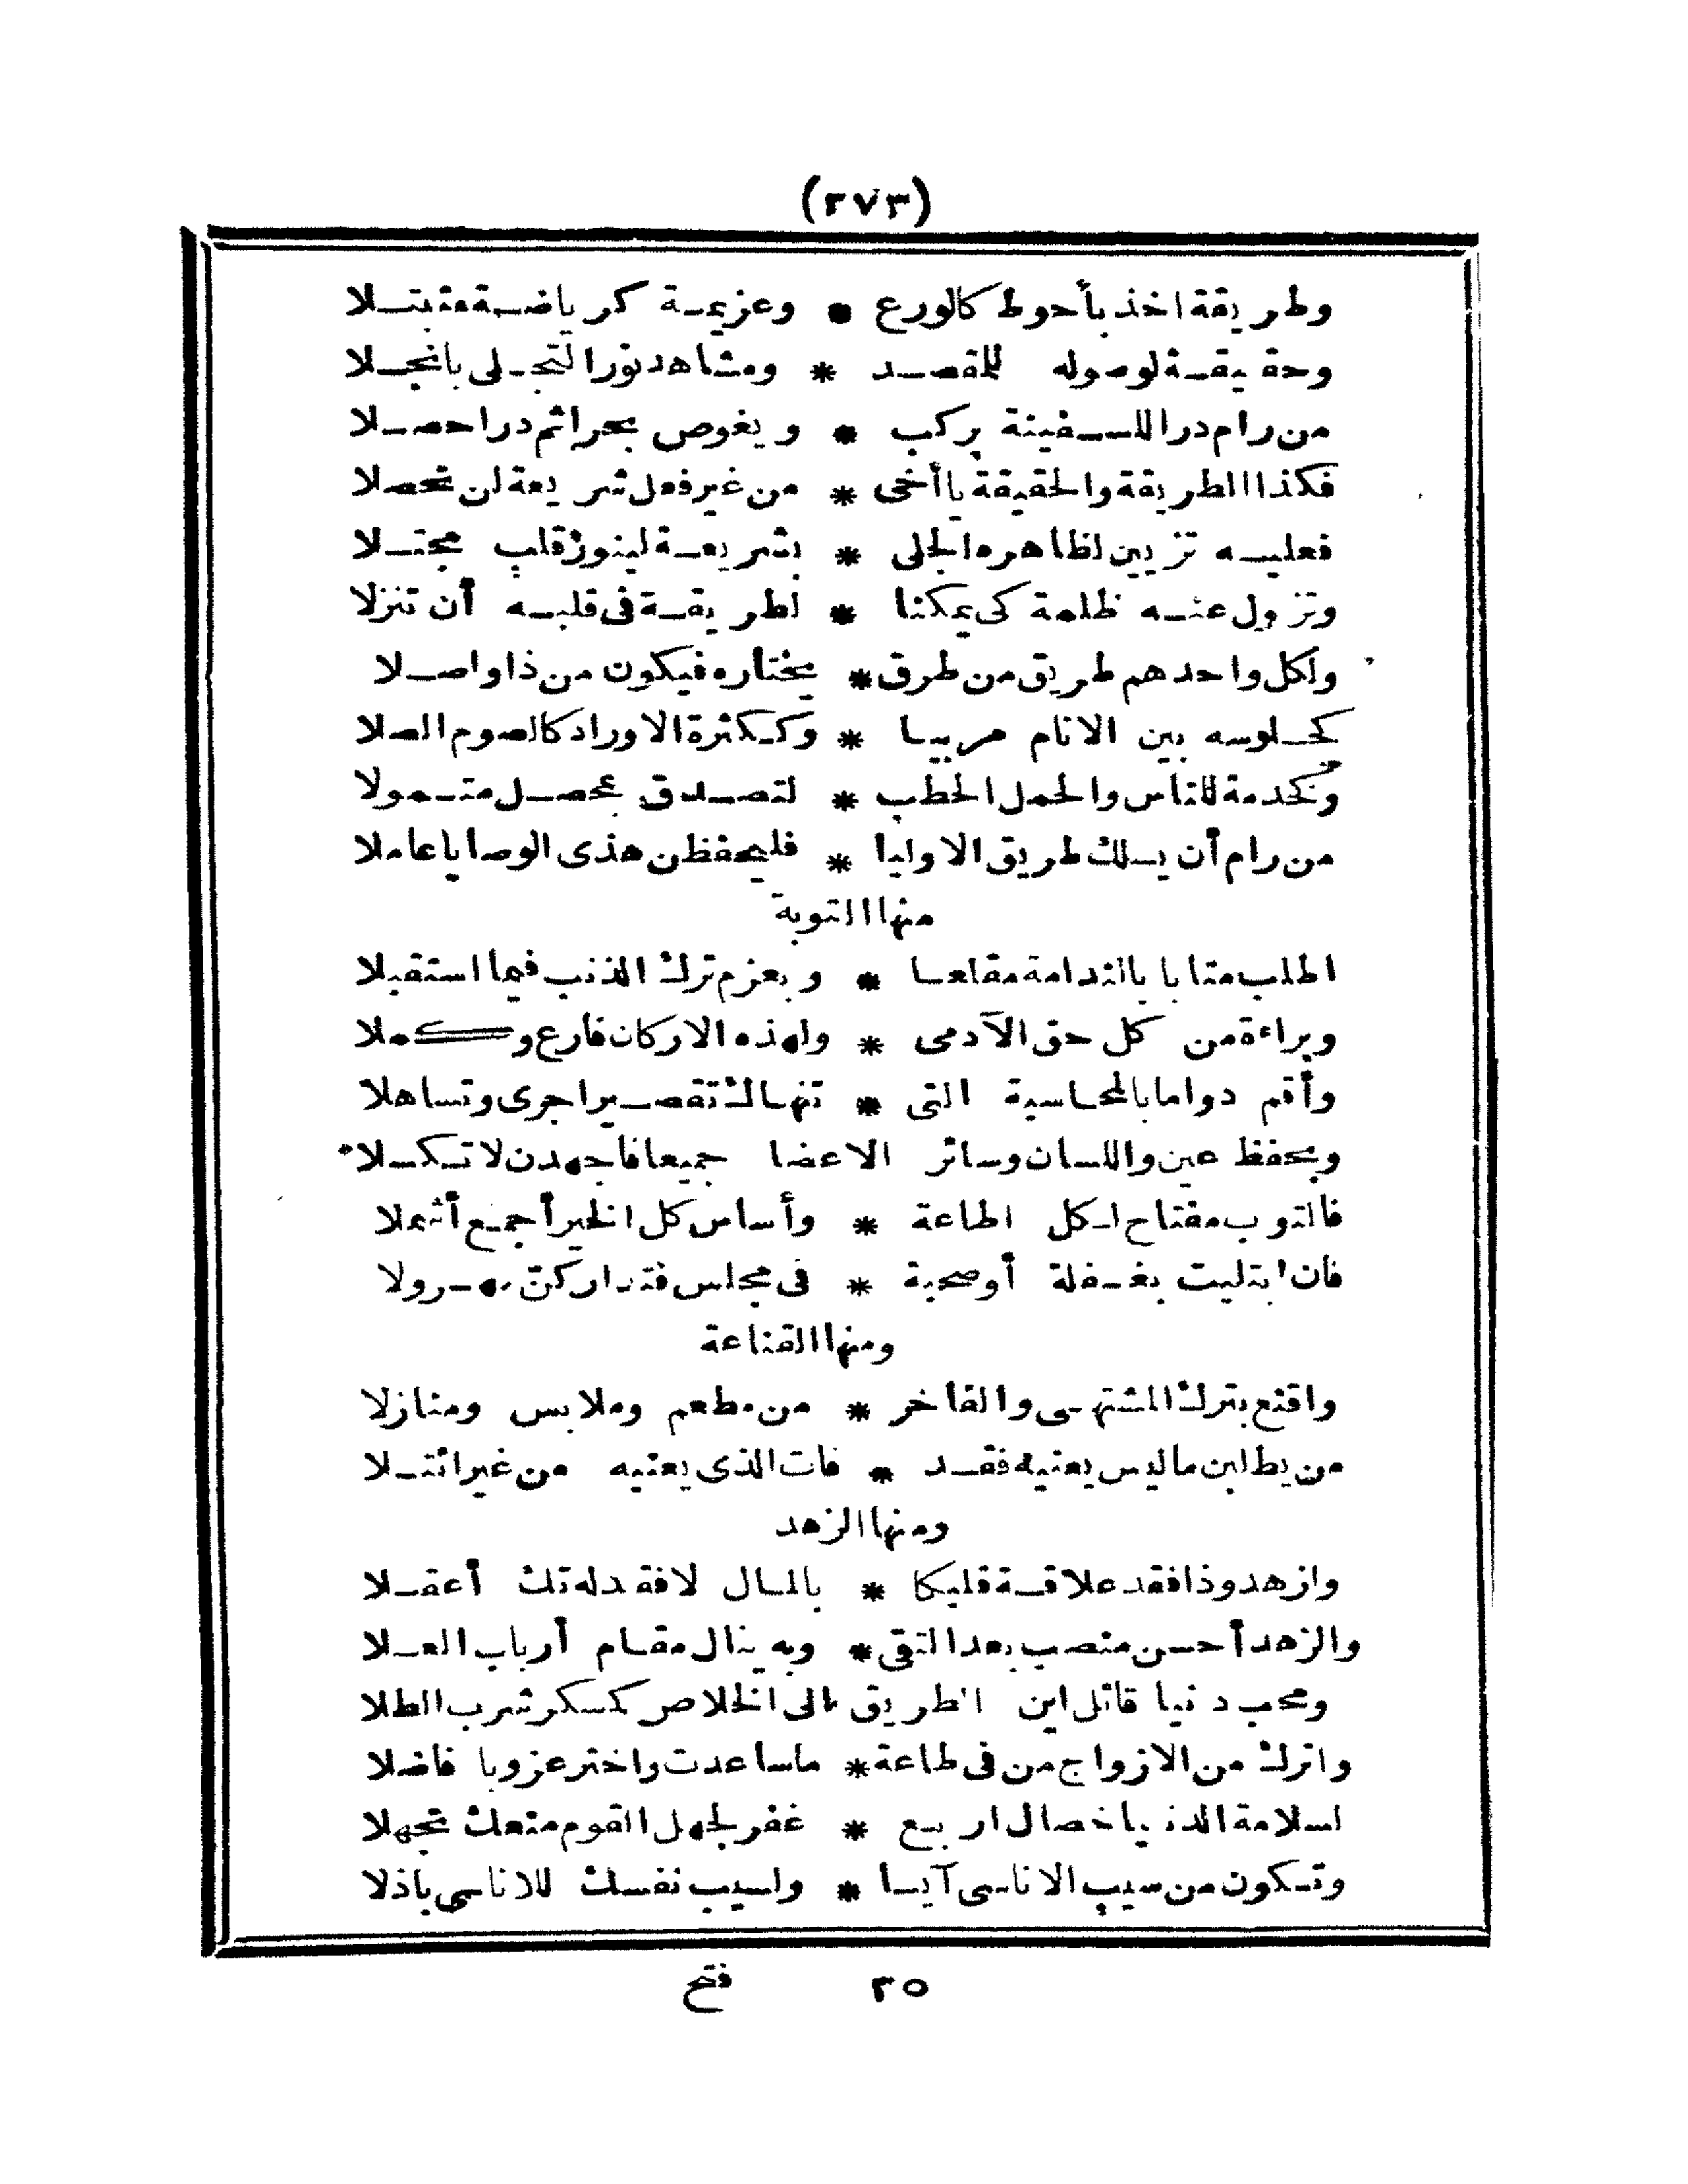 (٢٧٣)
وطريقة اخذ بأحوط كالورع * وعزيمة كرياضة متبتلا
وحقيقة لوصوله للمقصد * ومشاهد نور التجلى بانجلا
من رام درا للسفينة يركب * ويغوص بحرا ثم درا حصلا
فكذا الطريقة والحقيقة يا أخى * من غير فعل شريعة لن تحصلا
فعليه تزيين لظاهره الجلى * بشريعة لينور قلب مجتلا
وتزول عنه ظلمة كى يمكنا * لطريقة فى قلبه أن تنزلا
ولكل واحدهم طريق من طرق * يختاره فيكون من ذا واصلا
كجلوسه بين الانام مربيا * وككثرة الاوراد كالصوم الصلا
وكخدمة للناس والحمل الحطب * لتصدق بمحصل متمولا
من رام أن يسلك طريق الاوليا * فليحفظن هذى الوصايا عاملا
منها التوبة
اطلب متابا بالندامة مقلعا * وبعزم ترك الذنب فيما استقبلا
وبراءة من كل حق الآدمى * ولهذه الاركان فارع وكملا
وأقم دواما بالمحاسبة التى * تنهاك تقصيرا جرى وتساهلا
وبحفظ عين واللسان وسائر الاعضا جميعا فاجهدن لا تكسلا
فالتوب مفتاح لكل اطاعة * وأساس كل الخير أجمع أشملا
فان ابتليت بغفلة أو صحبة * فى مجلس فتداركن مهرولا
ومنها القناعة
واقنع بترك المشتهى والفاخر * من مطعم وملابس ومنازلا
من يطلبن ما ليس يعنيه فقد * فات الذى يعنيه من غير ائتلا
ومنها الزهد
وازهد وذا فقد علاقة قلبكا * بالمال لا فقد له تك أعقلا
والزهد أحسن منصب بعد التقى * وبه ينال مقام أرباب العلا
ومحب دنيا قائل اين الطريق الى الخلاص كسكر شرب الطلا
واترك من الازواج من فى طاعة * ما ساعدت واختر عزوبا فاضلا
لسلامة الدنيا خصال اربع * غفر لجهل القوم منعك تجهلا
وتكون من سيب الاناسى آيسا * ولسيب نفسك للاناسى باذلا
٣٥ فتح